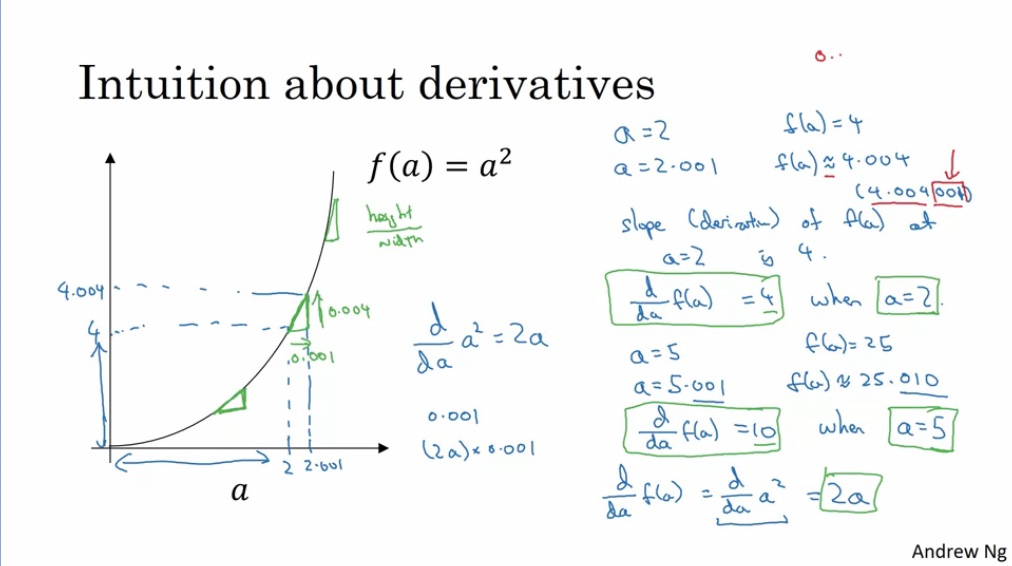 0..
Intuition about derivatives
f(a) = a²
height
width
4.004
4
0.004
0.001
2 2.001
a
d/da a² = 2a
0.001
(2a) × 0.001
a = 2 f(a) = 4
a = 2.001 f(a) ≈ 4.004
(4.004001)
slope (derivative) of f(a) at
a = 2 is 4.
d/da f(a) = 4 when a = 2.
a = 5 f(a) = 25
a = 5.001 f(a) ≈ 25.010
d/da f(a) = 10 when a = 5
d/da f(a) = d/da a² = 2a
Andrew Ng